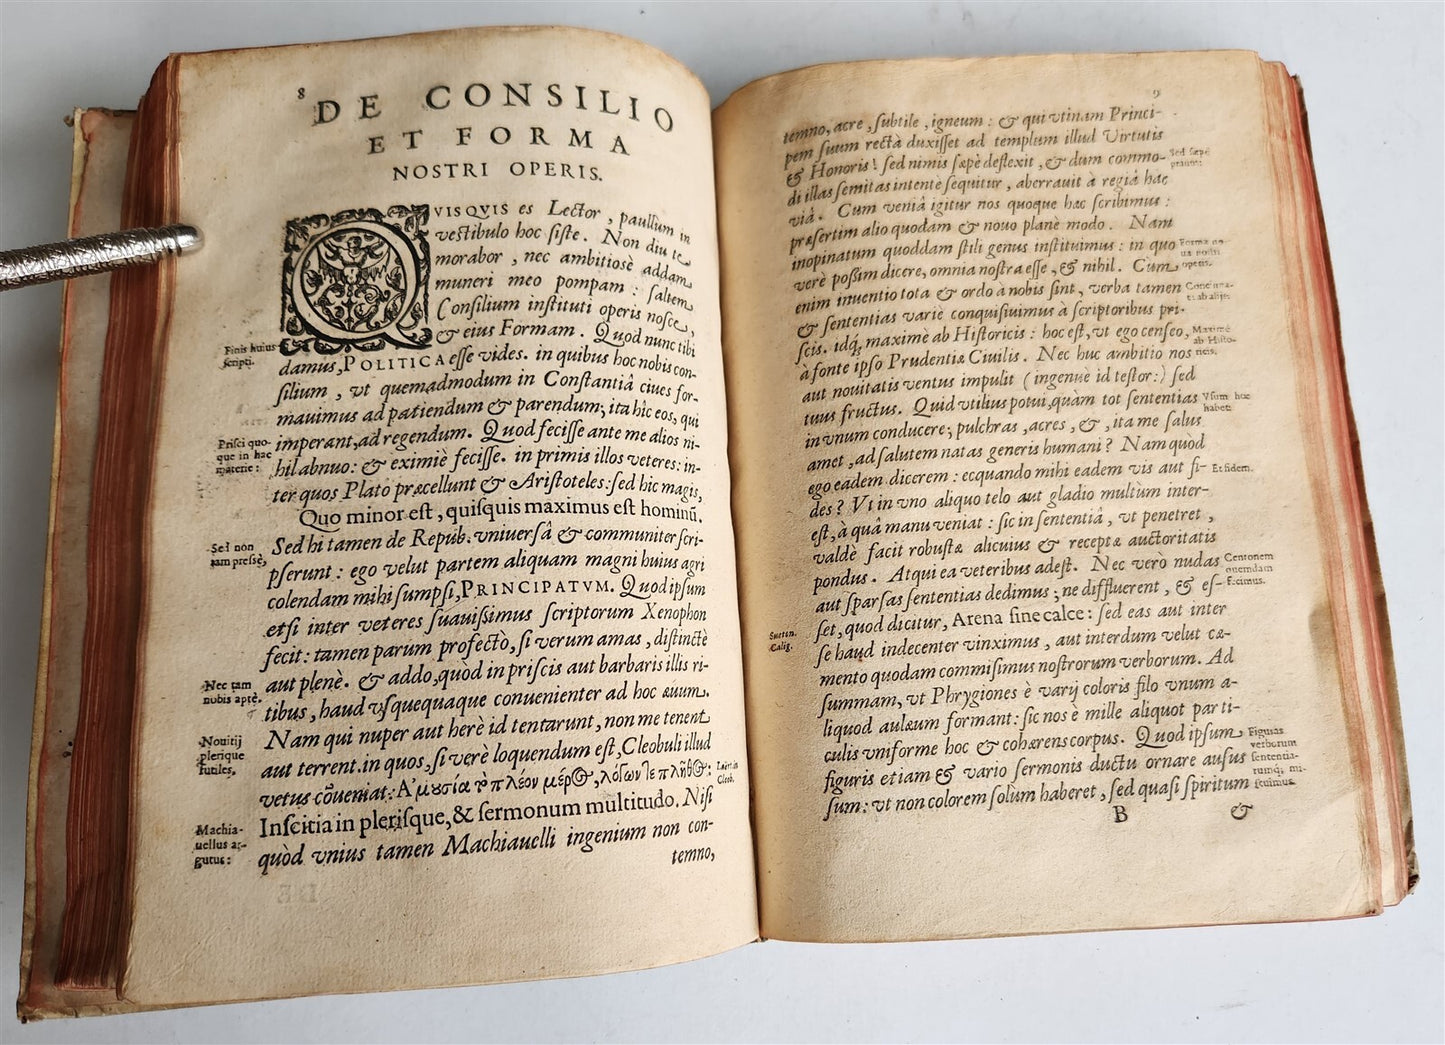 8
DE CONSILIO
ET FORMA
NOSTRI OPERIS.
QVISQVIS es Lector, paullùm in
vestibulo hoc siste. Non diu te
morabor, nec ambitiosè addam
muneri meo pompam: saltem
Consilium instituti operis nosce,
& eius Formam. Quod nunc tibi
Finis huius
scripti.
damus, POLITICA esse vides. in quibus hoc nobis con-
silium, vt quemadmodum in Constantiâ ciues for-
mauimus ad patiendum & parendum; ita hîc eos, qui
Prisci quo-
que in hac
materie:
imperant, ad regendum. Quod fecisse ante me alios ni-
hil abnuo: & eximiè fecisse. in primis illos veteres: in-
ter quos Plato præcellunt & Aristoteles: sed hic magis,
Quo minor est, quisquis maximus est hominū.
Sed non
tam pressè,
Sed hi tamen de Repub. vniuersâ & communiter scri-
pserunt: ego velut partem aliquam magni huius agri
colendam mihi sumpsi, PRINCIPATVM. Quod ipsum
etsi inter veteres suauissimus scriptorum Xenophon
fecit: tamen parum profecto, si verum amas, distinctè
Nec tam
nobis aptè.
aut plenè. & addo, quòd in priscis aut barbaris illis ri-
tibus, haud vsquequaque conuenienter ad hoc æuum.
Nam qui nuper aut herè id tentarunt, non me tenent
Nouitij
plerique
futiles,
aut terrent. in quos, si verè loquendum est, Cleobuli illud
vetus cōueniat: Ἀμουσία τὸ πλέον μέρος, λόγων τε πλῆθος:
Laërt. in
Cleob.
Inscitia in plerisque, & sermonum multitudo. Nisi
Machia-
uellus ar-
gutus:
quòd vnius tamen Machiauelli ingenium non con-
temno,
9
temno, acre, subtile, igneum: & qui vtinam Princi-
pem suum rectà duxisset ad templum illud Virtutis
& Honoris! sed nimis sæpè deflexit, & dum commo-
Sed sæpè
prauus:
di illas semitas intentè sequitur, aberrauit à regiâ hac
viâ. Cum veniâ igitur nos quoque hæc scribimus:
præsertim alio quodam & nouo planè modo. Nam
inopinatum quoddam stili genus instituimus: in quo
Forma no-
ua nostri
operis.
verè possim dicere, omnia nostra esse, & nihil. Cum
enim inuentio tota & ordo à nobis sint, verba tamen
& sententias variè conquisiuimus à scriptoribus pri-
scis. idq́; maximè ab Historicis: hoc est, vt ego censeo,
Maximè
ab Histo-
ricis.
à fonte ipso Prudentiæ Ciuilis. Nec huc ambitio nos
aut nouitatis ventus impulit (ingenuè id testor:) sed
tuus fructus. Quid vtilius potui, quàm tot sententias
Vsum hoc
habet:
in vnum conducere; pulchras, acres, &, ita me Salus
amet, ad salutem natas generis humani? Nam quòd
ego eadem dicerem: ecquando mihi eadem vis aut fi-
Et fidem.
des? Vt in vno aliquo telo aut gladio multùm inter-
est, à quâ manu veniat: sic in sententiâ, vt penetret,
valdè facit robustæ alicuius & receptæ auctoritatis
pondus. Atqui ea veteribus adest. Nec verò nudas
Centonem
quemdam
fecimus.
aut sparsas sententias dedimus; ne diffluerent, & es-
set, quod dicitur, Arena sine calce: sed eas aut inter
Sueton.
Calig.
se haud indecenter vinximus, aut interdum velut cæ-
mento quodam commisimus nostrorum verborum. Ad
summam, vt Phrygiones è varij coloris filo vnum a-
liquod aulæum formant: sic nos è mille aliquot parti-
culis vniforme hoc & cohærens corpus. Quod ipsum
Figuras
verborum
sententia-
rumq́; mi-
scuimus.
figuris etiam & vario sermonis ductu ornare ausus
sum: vt non colorem solùm haberet, sed quasi spiritum
B &